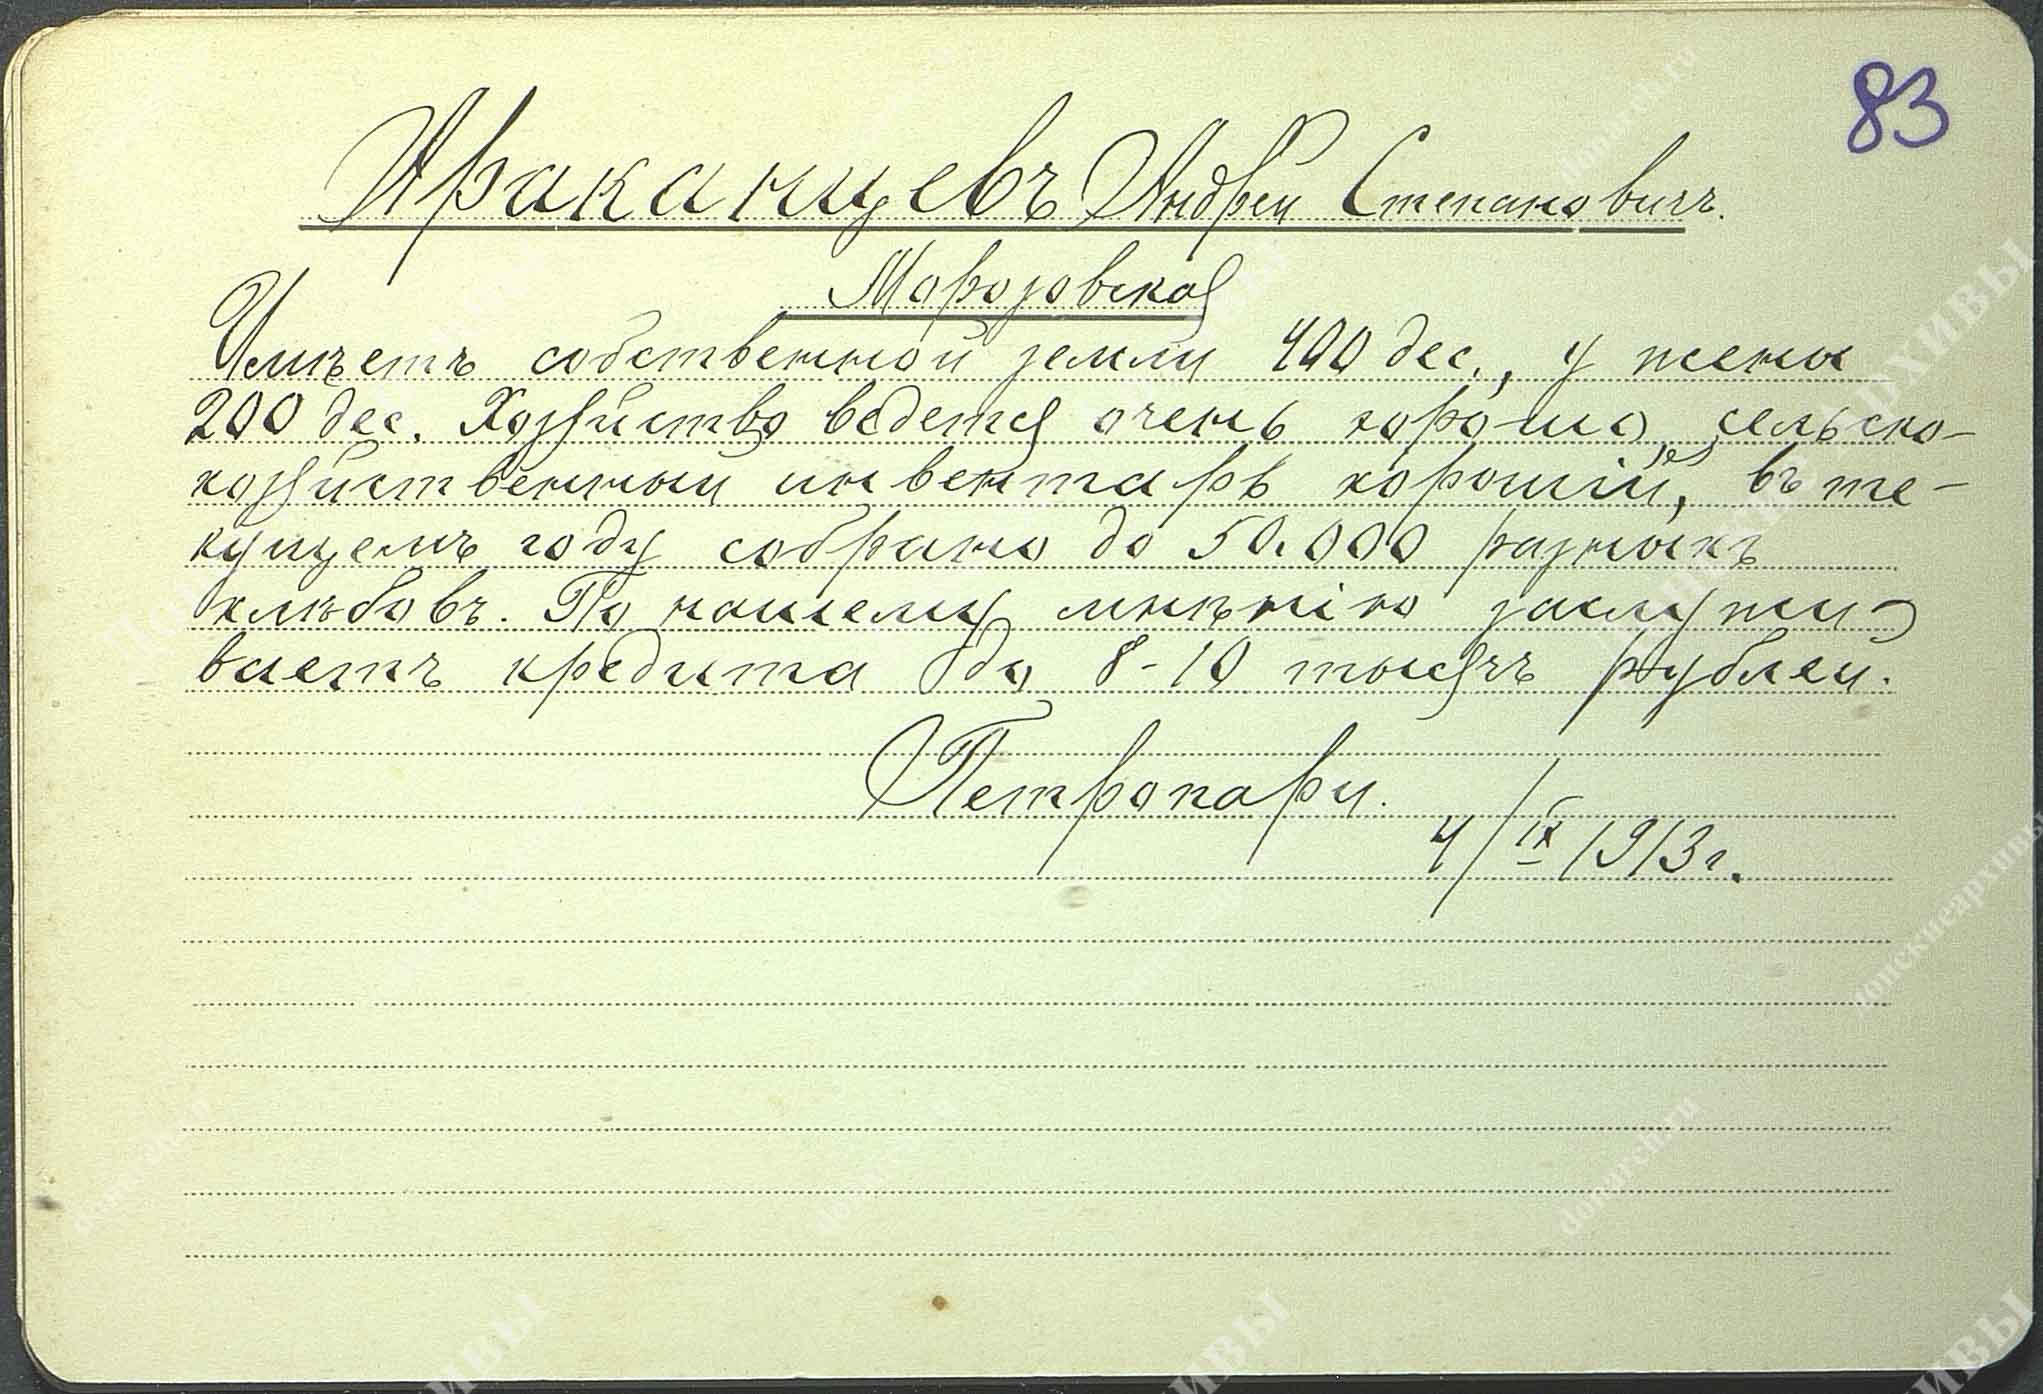 83
Араканцевъ Андрей Степановичъ.
Морозовская
Имѣетъ собственной земли 400 дес., у жены
200 дес. Хозяйство ведется очень хорошо, сельско-
хозяйственный инвентарь хорошій, въ те-
кущемъ году собрано до 50.000 разныхъ
хлѣбовъ. По нашему мнѣнію заслужи-
ваетъ кредита до 8-10 тысячъ рублей.
Петрокари.
4/IX 1913 г.